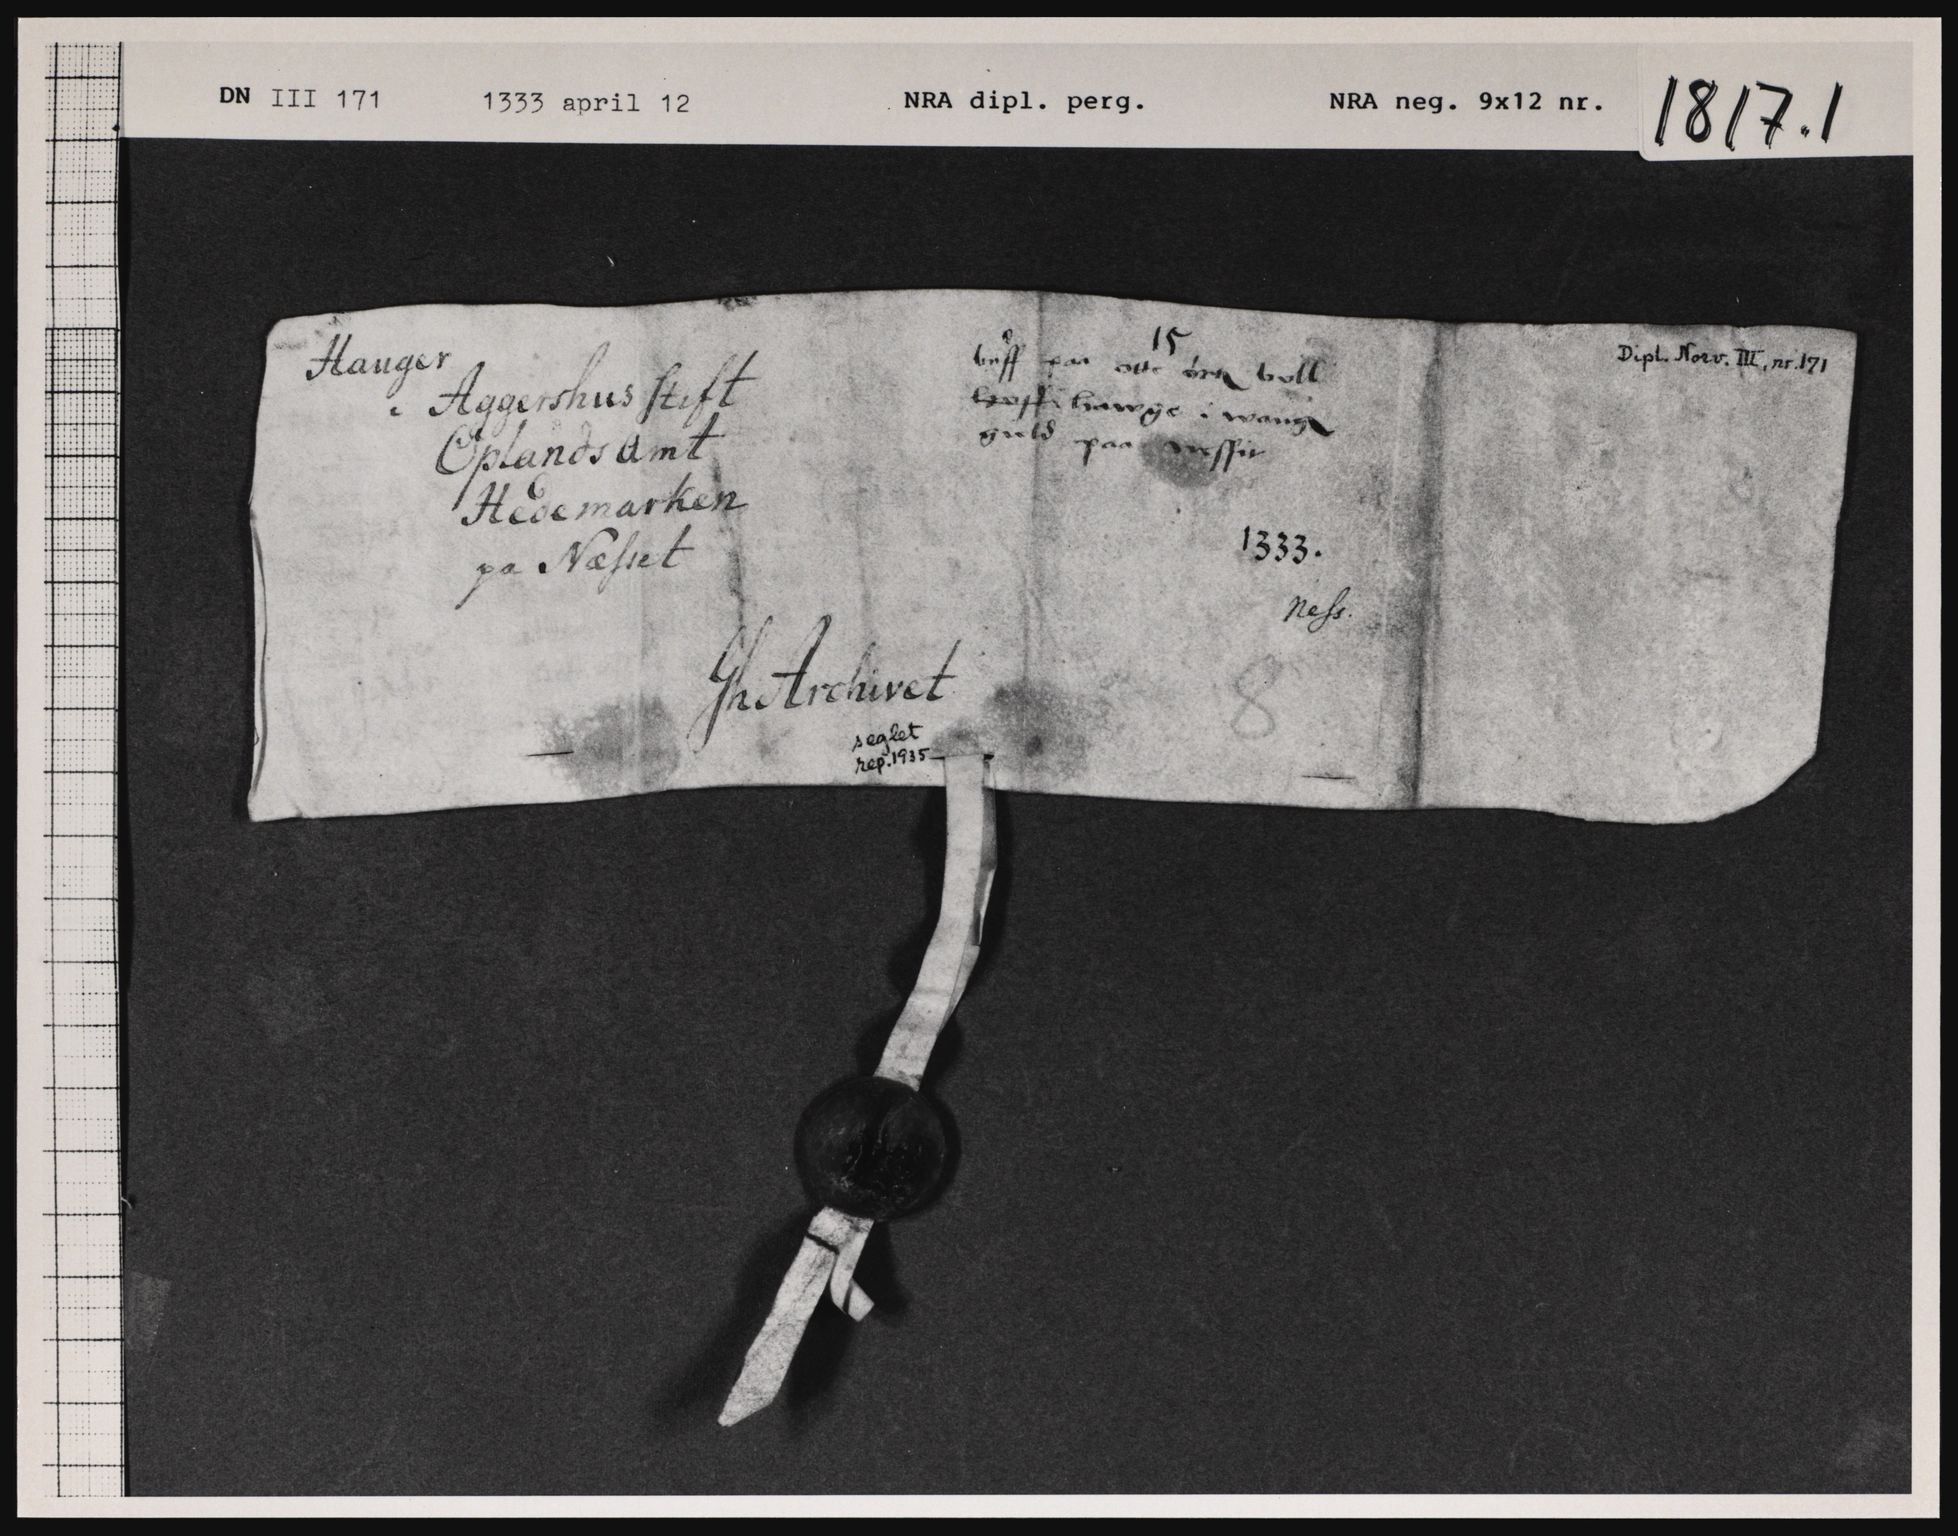 DN III 171 1333 april 12 NRA dipl. perg. NRA neg. 9x12 nr. 1817.1
Hauger
i Aggershus stift
Oplands Amt
Hedemarken
pa Næsset
Gh Archivet
seglet
rep. 1935
15
breff paa otte boll
i
paa nessit
1333.
Ness.
8
Dipl. Norv. III, nr. 171